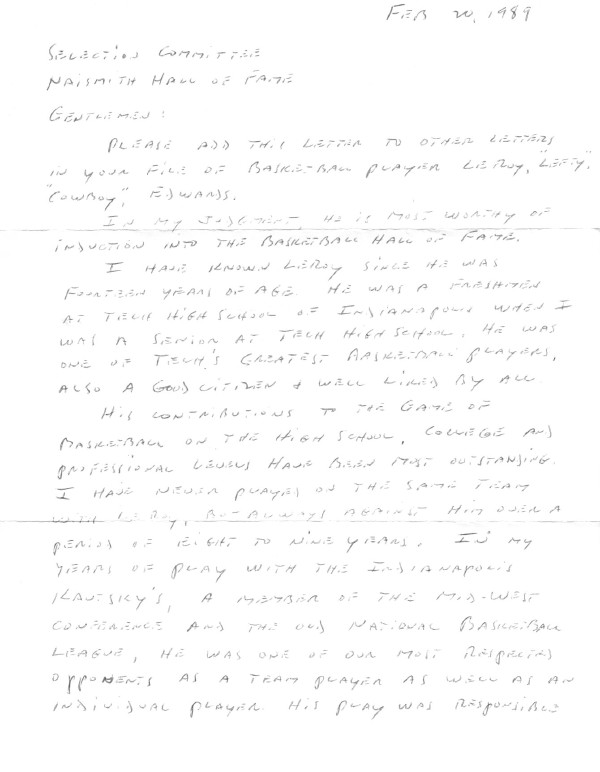 FEB 20, 1989
SELECTION COMMITTEE
NAISMITH HALL OF FAME
GENTLEMEN:
PLEASE ADD THIS LETTER TO OTHER LETTERS
IN YOUR FILE OF BASKETBALL PLAYER LEROY, "LEFTY",
"COWBOY", EDWARDS.
IN MY JUDGMENT, HE IS MOST WORTHY OF
INDUCTION INTO THE BASKETBALL HALL OF FAME.
I HAVE KNOWN LEROY SINCE HE WAS
FOURTEEN YEARS OF AGE. HE WAS A FRESHMEN
AT TECH HIGH SCHOOL OF INDIANAPOLIS WHEN I
WAS A SENIOR AT TECH HIGH SCHOOL. HE WAS
ONE OF TECH'S GREATEST BASKETBALL PLAYERS,
ALSO A GOOD CITIZEN & WELL LIKED BY ALL.
HIS CONTRIBUTIONS TO THE GAME OF
BASKETBALL ON THE HIGH SCHOOL, COLLEGE AND
PROFESSIONAL LEVELS HAVE BEEN MOST OUTSTANDING.
I HAVE NEVER PLAYED ON THE SAME TEAM
WITH LEROY, BUT ALWAYS AGAINST HIM OVER A
PERIOD OF EIGHT TO NINE YEARS. IN MY
YEARS OF PLAY WITH THE INDIANAPOLIS
KAUTSKY'S, A MEMBER OF THE MID-WEST
CONFERENCE AND THE OLD NATIONAL BASKETBALL
LEAGUE, HE WAS ONE OF OUR MOST RESPECTED
OPPONENTS AS A TEAM PLAYER AS WELL AS AN
INDIVIDUAL PLAYER. HIS PLAY WAS RESPONSIBLE